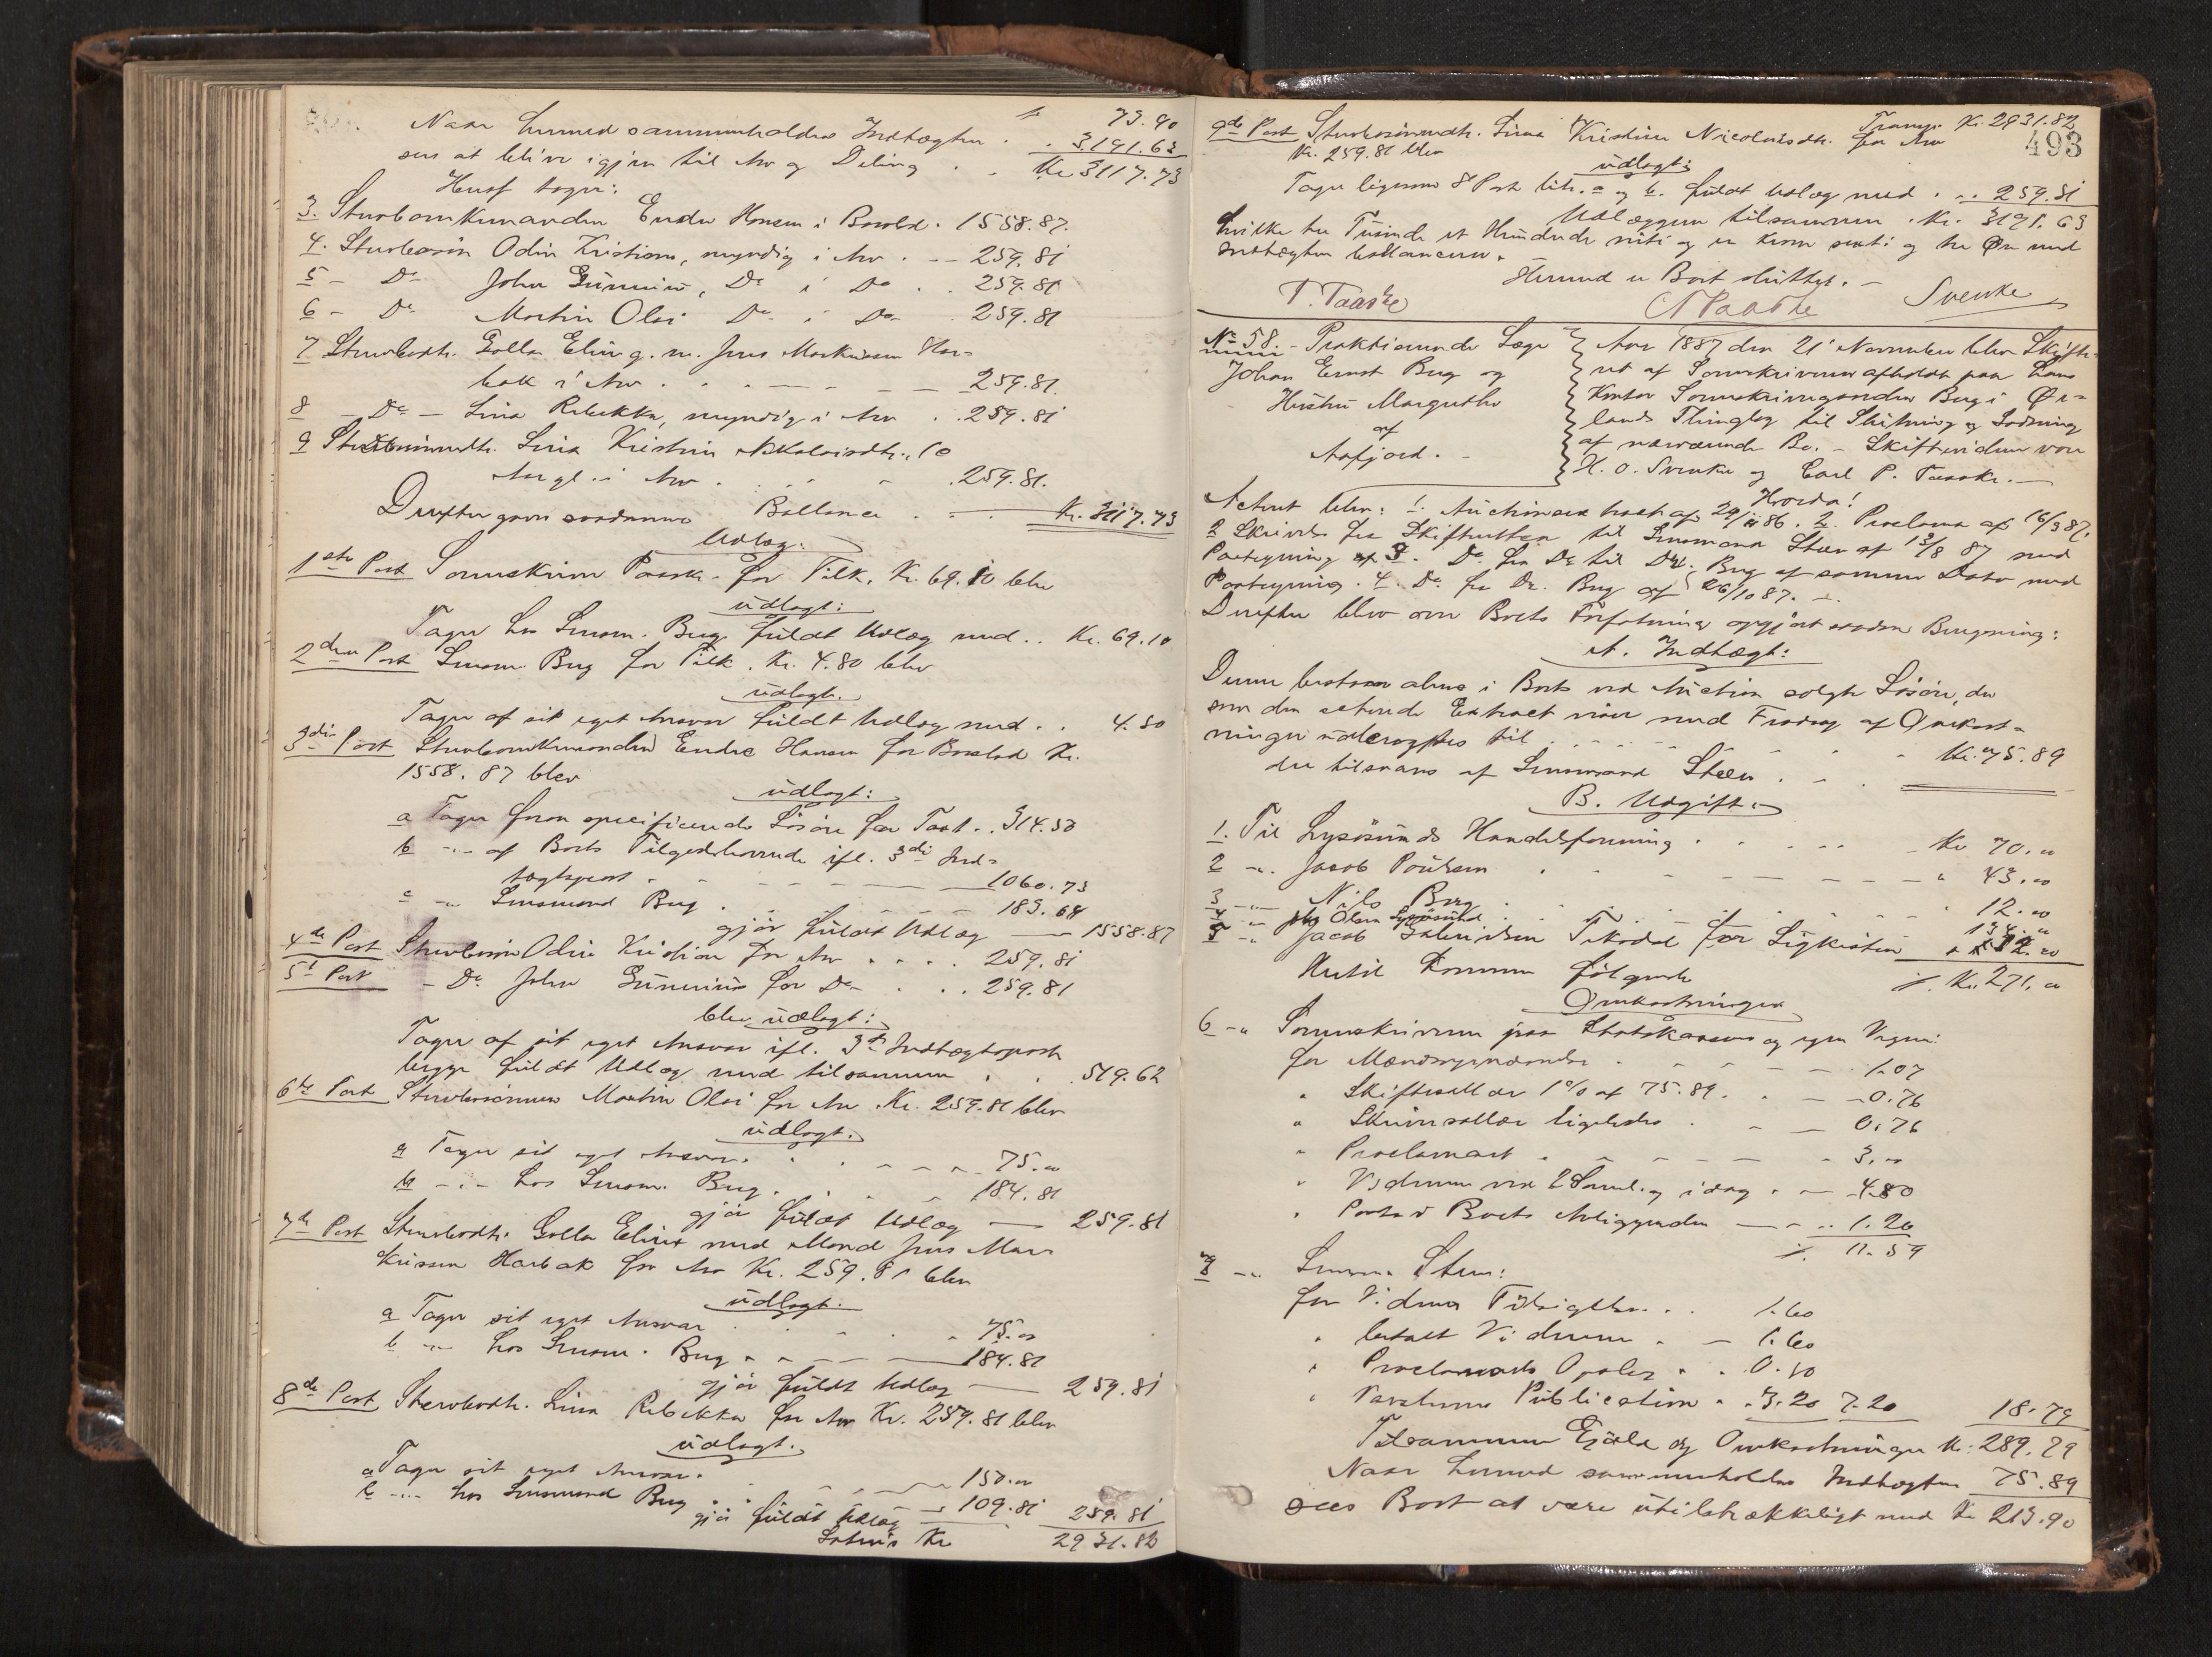 73.90
Naar hermed sammenholdes Indtægten . . 3,191.63
sees at blive igjen til Arv og Deling . . Kr. 3117.73
Heraf tager:
3. Sterbomkemanden Endre Hansen i Boslod . 1558.87.
4. Sterbosön Odin Kristian, myndig i Arv . -- 259.81
5 - Do John Gunerius, Do i Do . . 259.81
6 - Do Martin Olai Do i Do . 259.81
7 Sterbodtr. Golla Elin g. m. Jens Markussen Har-
bak i Arv . . . — — — 259.81.
8 - Do - Lina Rebekka, myndig i Arv . . 259.81
9 Sterbosönnedtr. Lina Kristine Nikolaisdtr., 10
Aar gl. i Arv . . . . 259.81.
Derefter gives saadanne Ballance . . Kr. 3117.73
Udlæg:
1ste Post Sorenskriver Paaske for Tilk. Kr. 69.10 blev
udlagt:
Tager hos Lensm. Bug fuldt Udlæg med . . Kr. 69.10
2den Post Lensm. Bug for Tilk. Kr. 4.80 blev
udlagt.
Tager af sit eget Ansvar fuldt Udlæg med . . 4.80
3die Post Sterbomkemanden Endre Hansen for Boslod Kr.
1558.87 blev
udlagt:
a Tager foran specificerede Lösöre for Taxt . . 314.50
b - " - af Boets Tilgodehavende ifl. 3die Ind-
tægtspost . — — — 1060.73
c - " Lensmand Bug . . . 183.64
gjör fuldt Udlæg — 1558.87
4de Post Sterbosön Odin Kristian for Arv . . . . 259.81
5te Post - Do John Gunerius for Do . . . 259.81
blev udlagt:
Tager af sit eget Ansvar ifl. 3die Indtægtspost
begge fuldt Udlæg med tilsammen . . . 519.62
6te Post Sterbosönnen Martin Olai for Arv Kr. 259.81 blev
udlagt.
a Tager sit eget Ansvar . . . . 75."
b - " - hos Lensm. Bug . . . 184.81
gjör fuldt Udlæg — 259.81
7de Post Sterbodtr. Golla Elin med Mand Jens Mar-
kussen Harbak for Arv Kr. 259.81 blev
udlagt.
a Tager sit eget Ansvar . . . 75."
b - " hos Lensm. Bug . . — 184.81
gjör fuldt Udlæg — 259.81
8de Post Sterbodtr. Lina Rebekka for Arv Kr. 259.81 blev
udlagt.
a Tager sit eget Ansvar . . . 150."
b - " - hos Lensmand Bug . . 109.81
gjör fuldt Udlæg — 259.81
Latus Kr. 2931.82
Transp. Kr. 2931.82
493
9de Post Sterbosönnedtr. Lina Kristine Nicolaisdtr. for Arv
Kr. 259.81 blev
udlagt:
Tager ligesom 8de Post litr. a og b. fuldt Udlæg med . . . 259.81
Udlæggene tilsammen . Kr. 3191.63
hvilke tre Tusinde et Hundrede niti og en Krone sexti og tre Øre med
Indtægten ballancerer.
Hermed er Boet sluttet. —
T. Taaske C P Paaske Svenke
No 58. - Praktiserende Læge
Johan Ernst Bug og
Hustru Margrethe
af
Aafjord. -
Aar 1887 den 21 November blev Skifte-
ret af Sorenskriveren afholdt paa hans
Kontor Sorenskrivergaarden Bug i Ør-
lands Thinglag til Slutning og Lodning
af nærværende Bo. - Skiftevidner vare
H. O. Svenke og Carl P. Taaske. —
Hvorda!
Acteret blev: 1. Auctionsextract af 29/11 86. 2. Proclama af 16/3 87.
2 Skrivelse fra Skifteretten til Lensmand Steen af 13/8 87 med
Paategning af 3. Do fra Do til Dr. Bug af samme Dato med
Paategning. 4. Do fra Dr. Bug af 26/10 87. —
Derefter blev over Boets Forfatning opgjört saadan Beregning:
A. Indtægt:
Denne bestaar alene i Boets ved Auction solgte Lösöre, der
som den acterede Extract viser med Fradrag af Omkost-
ninger udbragtes til . . . . . . . Kr. 75.89
der tilsvares af Lensmand Steen . . .
B. Udgift.
1. Til Lysösunds Handelsforening . . . . . Kr 70."
2 - ". Jacob Poulsen . . . — — " 43."
3 - " Nils Berg . . . . . . 12."
4 - " Olsen Lysösund . . . . . . 134."
5 - " Jacob Tiködal for Ligkisten 12."
Hertil kommer fölgende ./. Kr. 271."
Omkostninger
6 - " Sorenskriveren paa Statskassens og egne Vegne:
for . . . . . 1.07
" Skiftesallær 1% af 75.89 . . — 0.76
" Skriversallær ligeledes . — — 0.76
" Proclamaet . . . . 3."
" Vidnerne ved 2 Saml. og idag . . 4.80
" Porto i Boets Anliggender — . . 1.20
./. 11.59
7 - " Lensm. Steen:
for Vidners Tilsigelse . . . 1.60
" betalt Vidnerne . — 1.60
" Proclamaets Opslag . . 0.80
" Publication . . 3.20 7.20 18.79
Tilsammen Gjæld og Omkostninger Kr. 289.79
Naar hermed sammenholdes Indtægten 75.89
sees Boet at være utilstrækkeligt med Kr 213.90